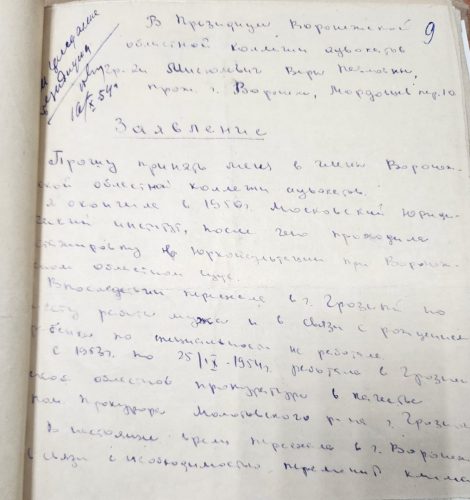 9
на заседание
президиума
16/X 54 г
В Президиум Воронежской
областной коллегии адвокатов
Веры Павловны,
прож. г. Воронеж,
Заявление
Прошу принять меня в члены Воронеж-
ской областной коллегии адвокатов.
Я окончила в 1950 г. Московский Юриди-
ческий институт, после чего проходила
стажировку в Юрконсультации при Воронеж-
ском областном суде.
Впоследствии переехала в г. Грозный по
месту работы мужа и в связи с рождением
ребенка по специальности не работала.
С 1953 г. по 25/IX-1954 г. работала в Грознен-
ской областной прокуратуре в качестве
пом. Прокурора Молотовского р-на г. Грозного
В настоящее время переехала в г. Воронеж
в связи с необходимостью переменить климат